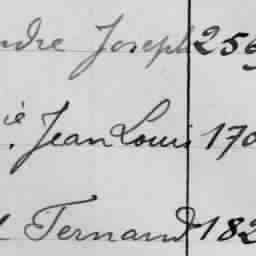 ndre Joseph 256
ié. Jean Louis 170
l Fernand 182